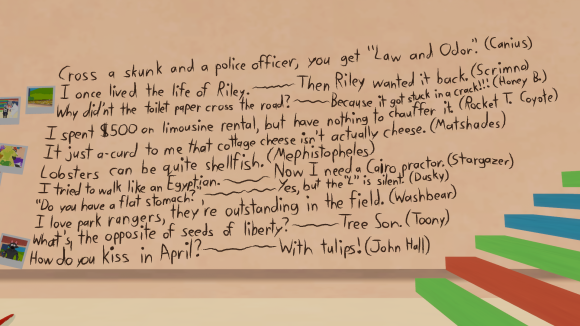 Cross a skunk and a police officer, you get "Law and Odor." (Canius)
I once lived the life of Riley. Then Riley wanted it back. (Scrimna)
Why did'nt the toilet paper cross the road? Because it got stuck in a crack!!! (Honey B.)
I spent $500 on limousine rental, but have nothing to chauffer it. (Rocket T. Coyote)
It just a-curd to me that cottage cheese isn't actually cheese. (Matshades)
Lobsters can be quite shellfish. (Mephistopheles)
I tried to walk like an Egyptian. Now I need a Cairo practor. (Stargazer)
"Do you have a flat stomach?" Yes, but the "L" is silent. (Dusky)
I love park rangers, they're outstanding in the field. (Washbear)
What's the opposite of seeds of liberty? Tree Son. (Toony)
How do you kiss in April? With tulips! (John Hall)